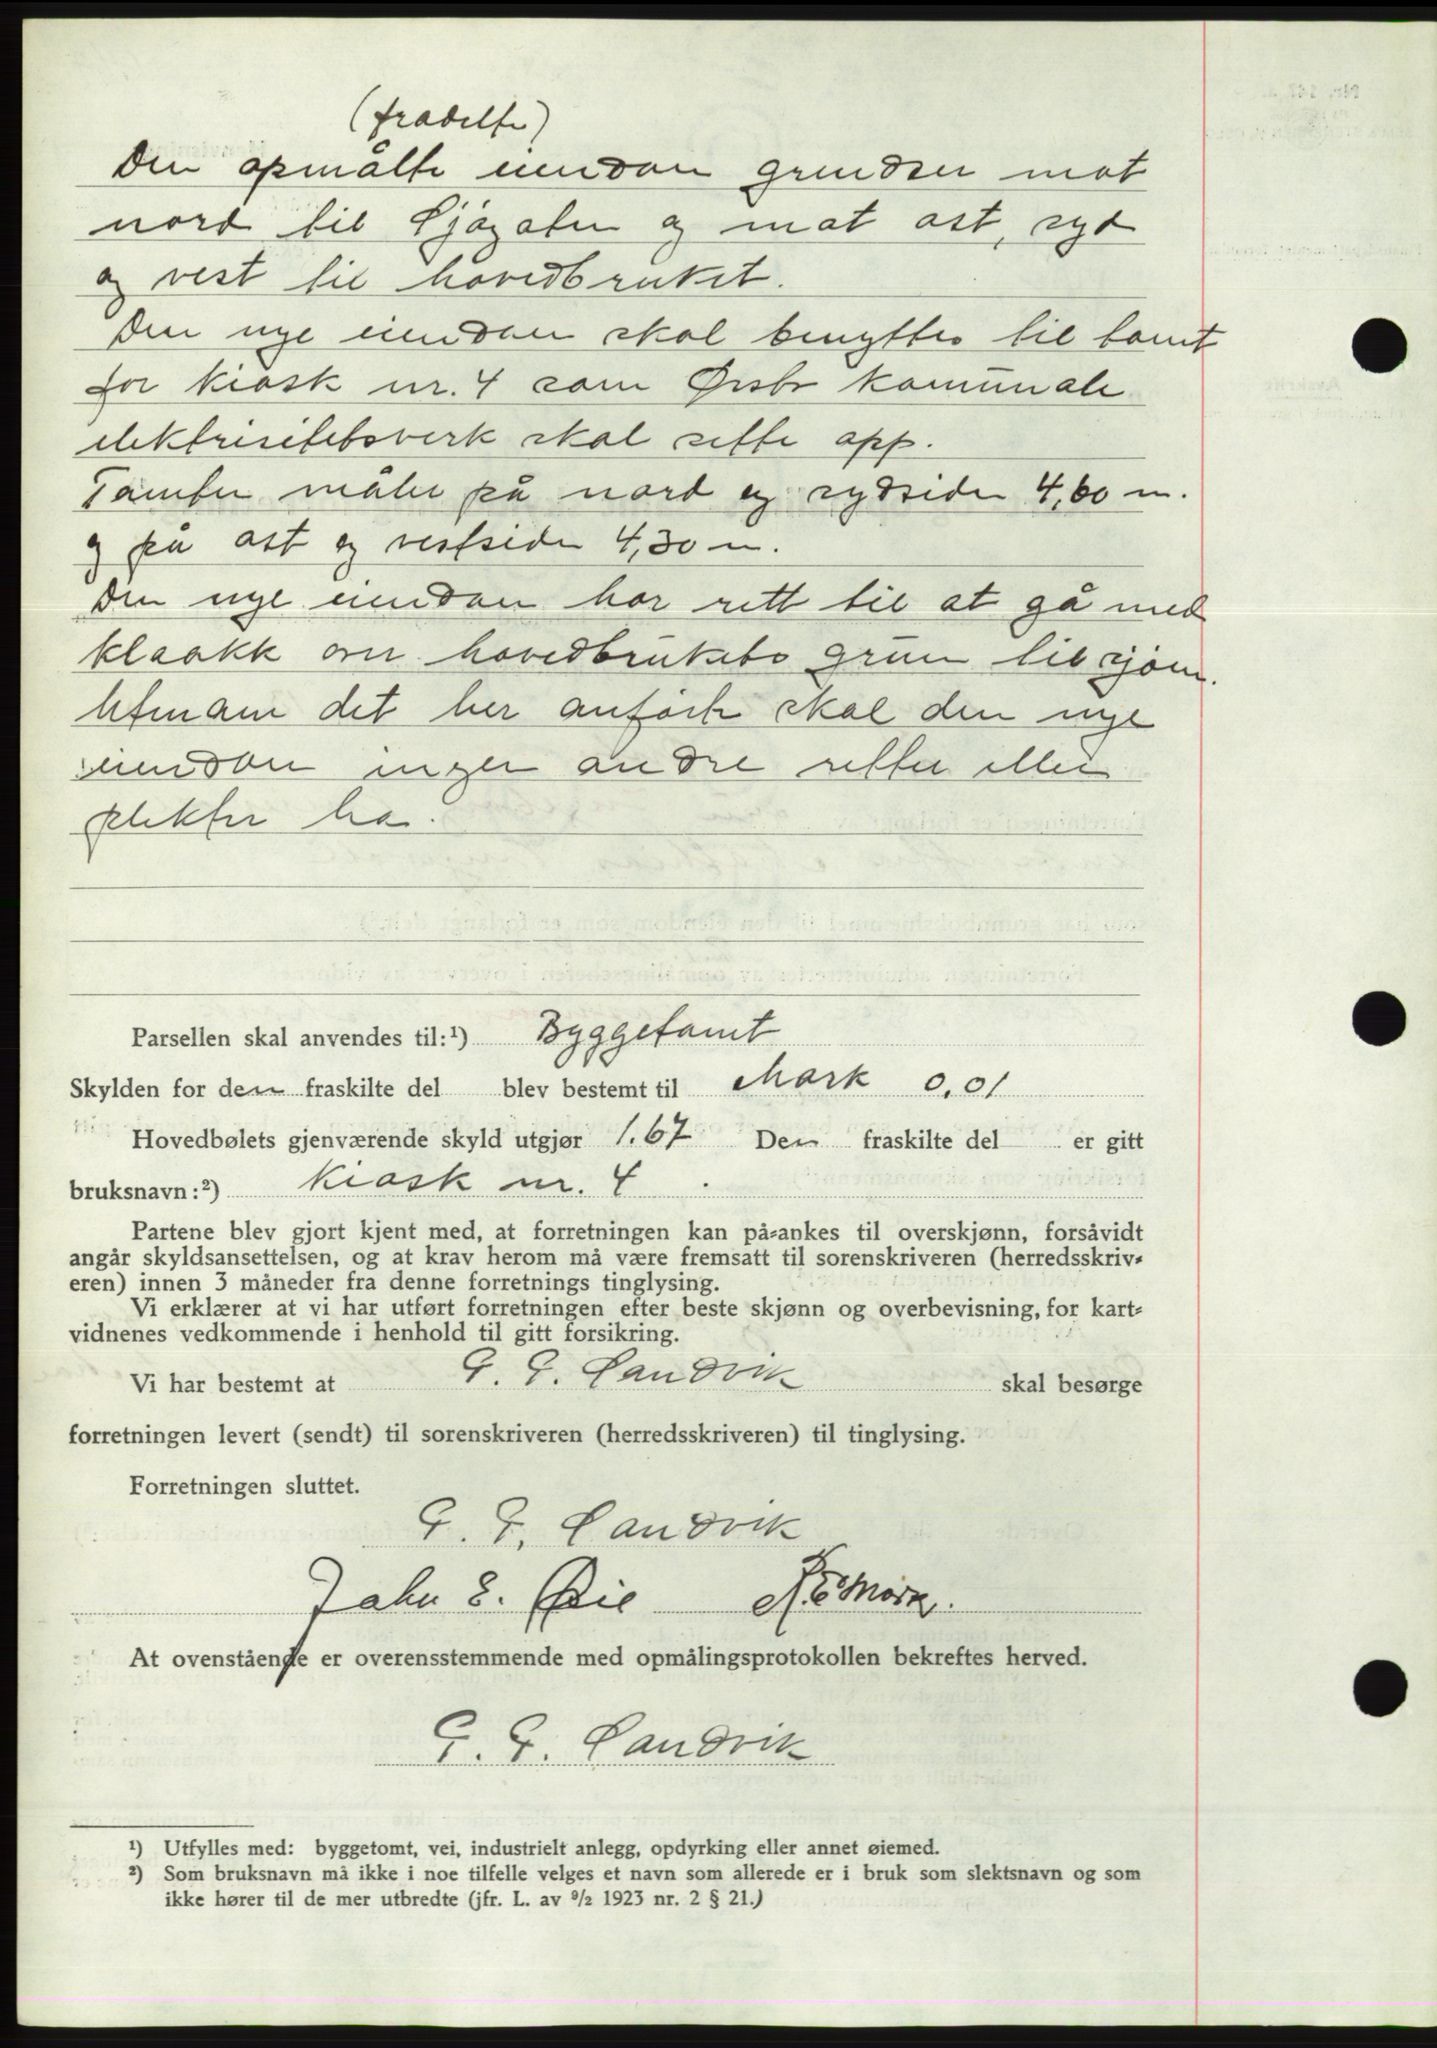 (fradelte)
Den opmålte eiendom grendser mot
nord til Sjøgaten og mot ost, syd
og vest til hovedbruket.
Den nye eiendom skal benyttes til tomt
for kiosk nr. 4 som Ørsta kommunale
elektrisitetsverk skal sette opp.
Tomten måler på nord og sydsiden 4,60 m.
og på ost og vestsiden 4,30 m.
Den nye eiendom har rett til at gå med
kloakk over hovedbrukets grunn til sjøen.
Utenom det her anførte skal den nye
eiendom ingen andre retter eller
plikter ha.
Parsellen skal anvendes til:¹) Byggetomt
Skylden for den fraskilte del blev bestemt til Mark 0,01
Hovedbølets gjenværende skyld utgjør 1.67 Den fraskilte del er gitt
bruksnavn:²) Kiosk nr. 4.
Partene blev gjort kjent med, at forretningen kan på-ankes til overskjønn, forsåvidt
angår skyldsansettelsen, og at krav herom må være fremsatt til sorenskriveren (herredsskriv-
eren) innen 3 måneder fra denne forretnings tinglysing.
Vi erklærer at vi har utført forretningen efter beste skjønn og overbevisning, for kart-
vidnenes vedkommende i henhold til gitt forsikring.
Vi har bestemt at G. G. Sandvik skal besørge
forretningen levert (sendt) til sorenskriveren (herredsskriveren) til tinglysing.
Forretningen sluttet.
G. G. Sandvik
John E. Øie R. E. Mork.
At ovenstående er overensstemmende med opmålingsprotokollen bekreftes herved.
G. G. Sandvik
¹) Utfylles med: byggetomt, vei, industrielt anlegg, opdyrking eller annet øiemed.
²) Som bruksnavn må ikke i noe tilfelle velges et navn som allerede er i bruk som slektsnavn og som
ikke hører til de mer utbredte (jfr. L. av ⁹/₂ 1923 nr. 2 § 21.)